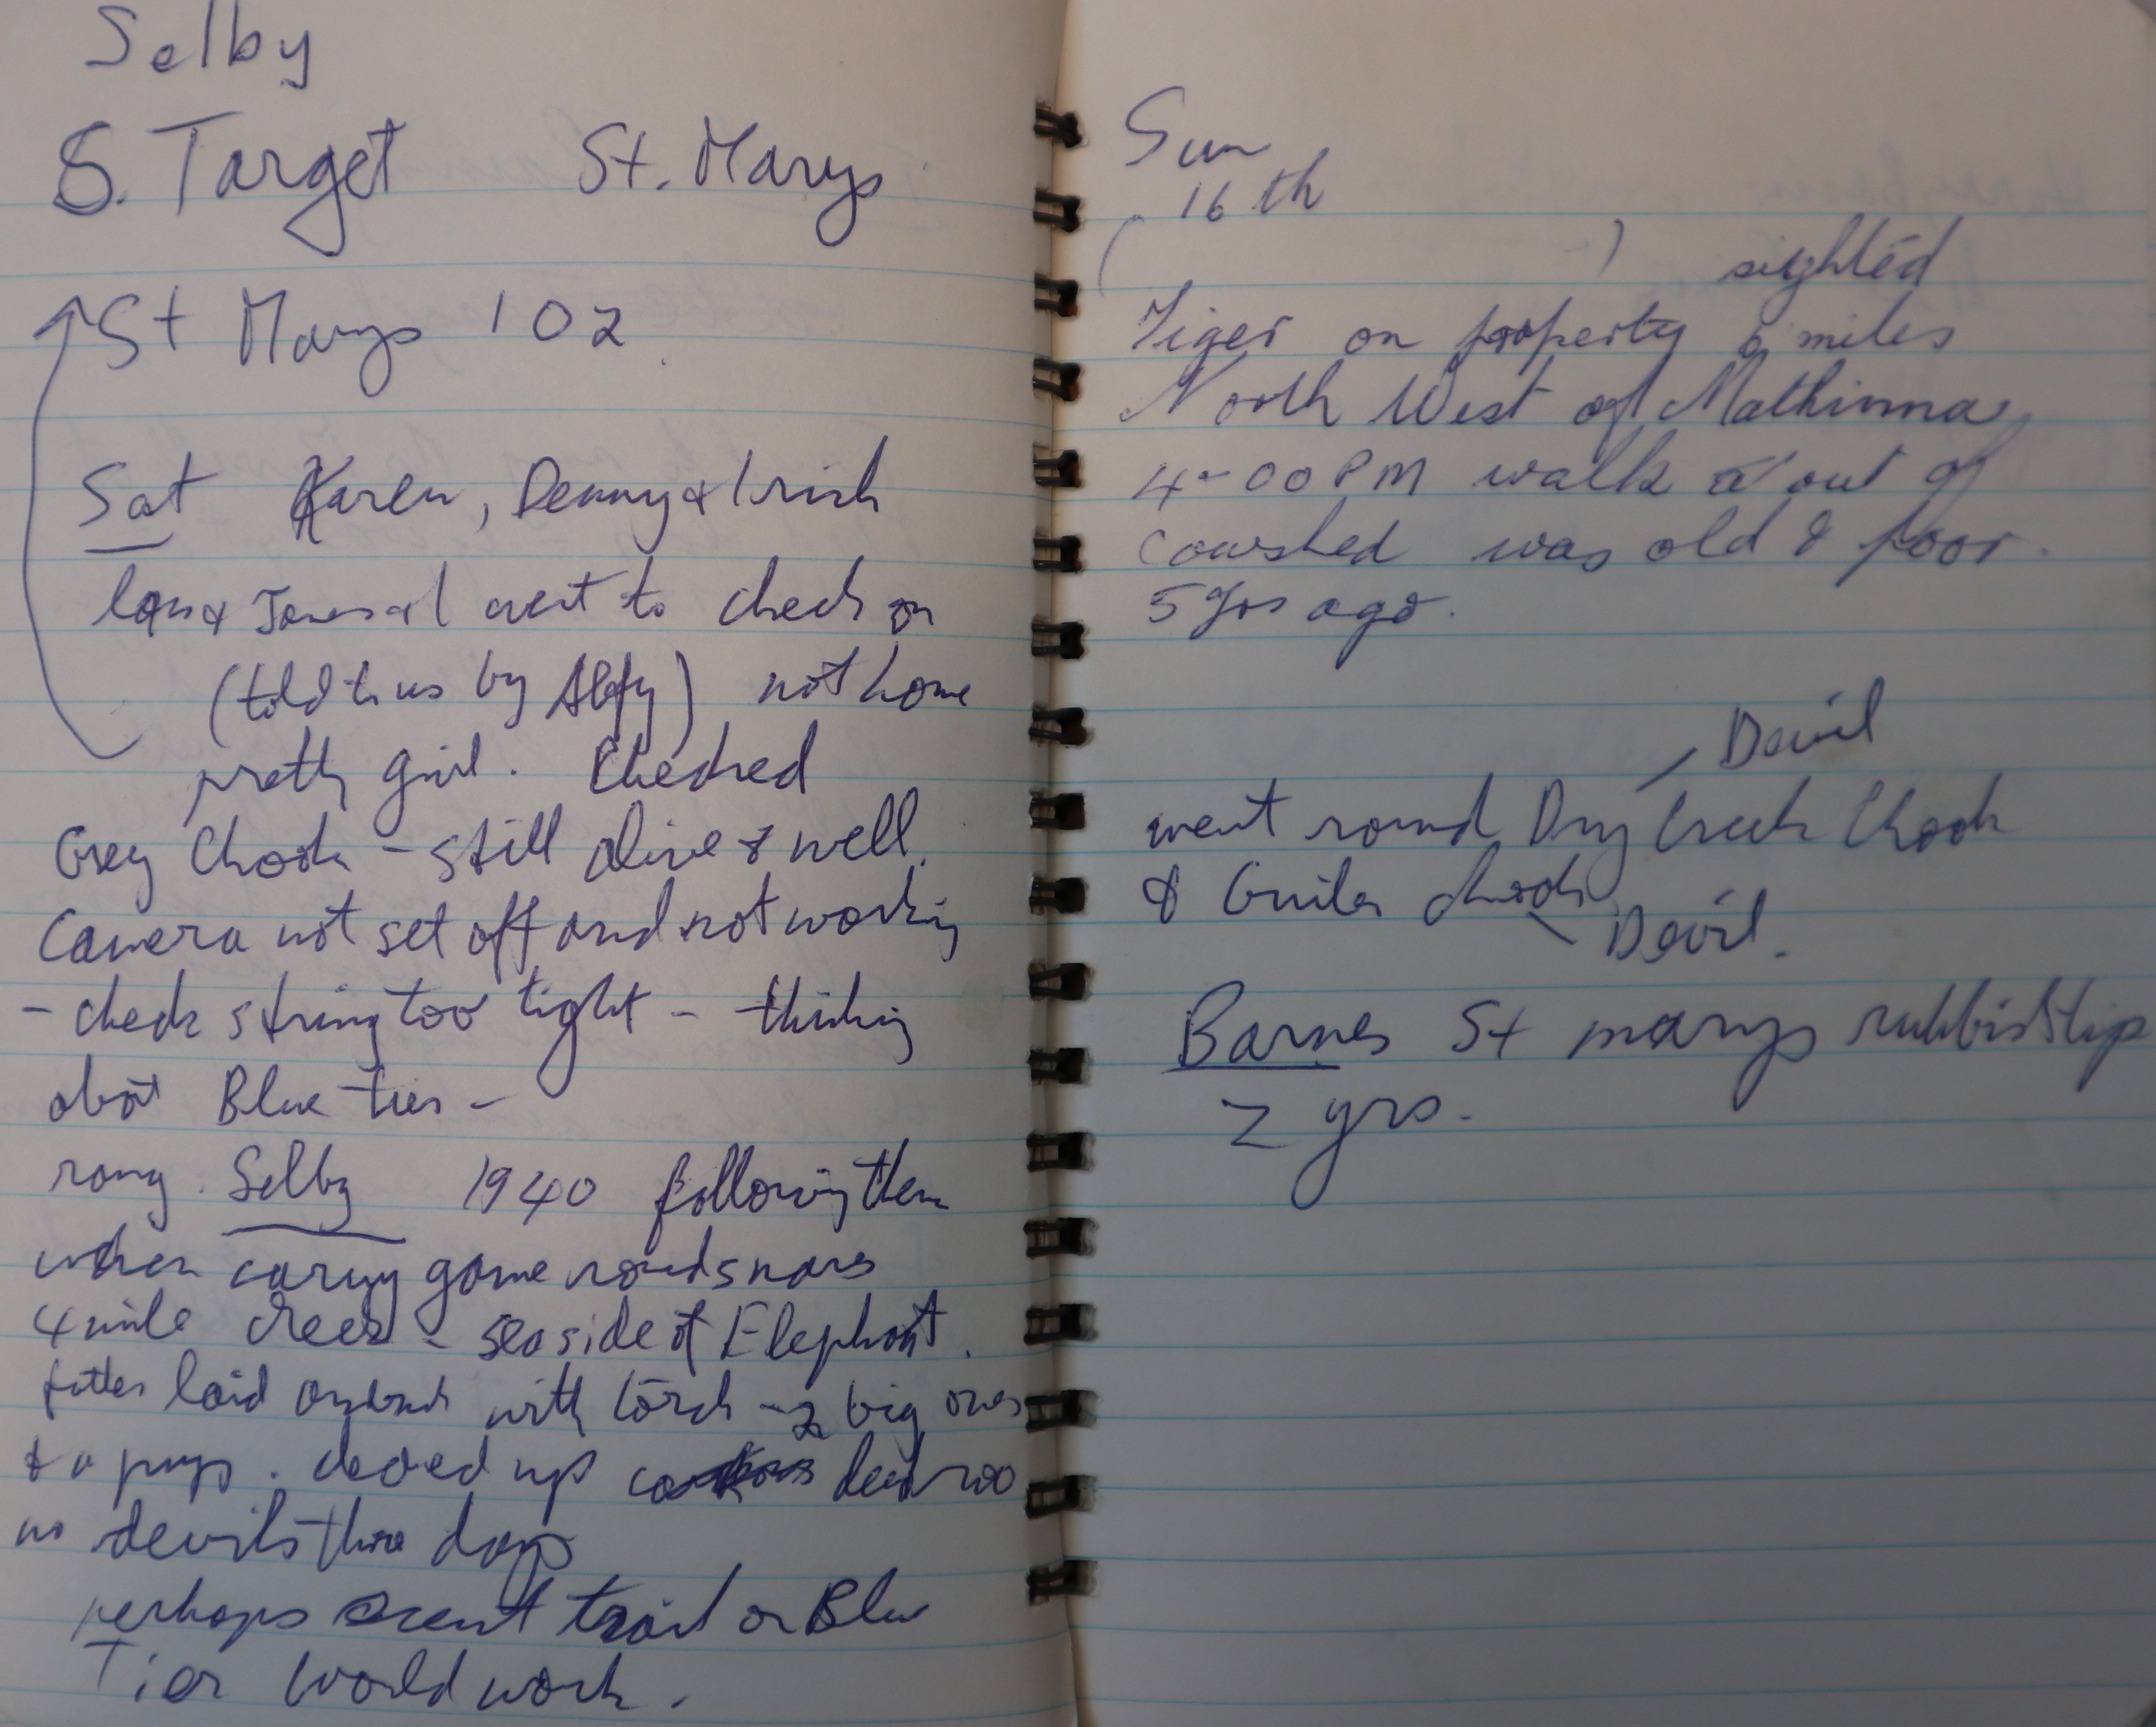 Selby
S. Target St. Marys
St Marys 102
Sat Karen, Denny &
& James & I went to check on
(told to us by Alfy) not home
pretty girl. Checked
Grey Chook - still alive & well.
Camera not set off and not working
- check string too tight - thinking
about Blue tier -
rang Selby 1940 following them
when carrying game round snares
4 mile creek - sea side of Elephant.
father laid with torch - 2 big ones
& a pups. cleaned up dead roo
no devils those days
perhaps scent trail on Blue
Tier would work.
Sun
16th
( ) sighted
Tiger on property 6 miles
North West of Mathinna
4-00 PM walk out of
cowshed was old & poor.
5 yrs ago.
Devil
went round Dry Creek Chook
& chook
Devil.
Barnes St marys rubbish tip
2 yrs.